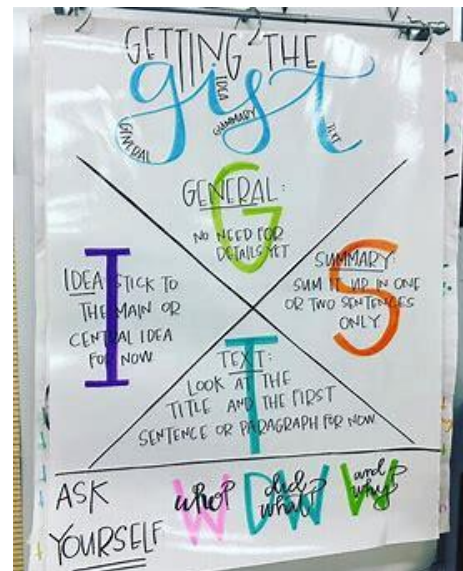 GETTING THE
gist
GENERAL
IDEA
SUMMARY
TEXT
G
GENERAL:
NO NEED FOR
DETAILS YET
I
IDEA STICK TO
THE MAIN OR
CENTRAL IDEA
FOR NOW
S
SUMMARY:
SUM IT UP IN ONE
OR TWO SENTENCES
ONLY
T
TEXT:
LOOK AT THE
TITLE AND THE FIRST
SENTENCE OR PARAGRAPH FOR NOW
ASK
YOURSELF
W DW W
who? did what? and why?